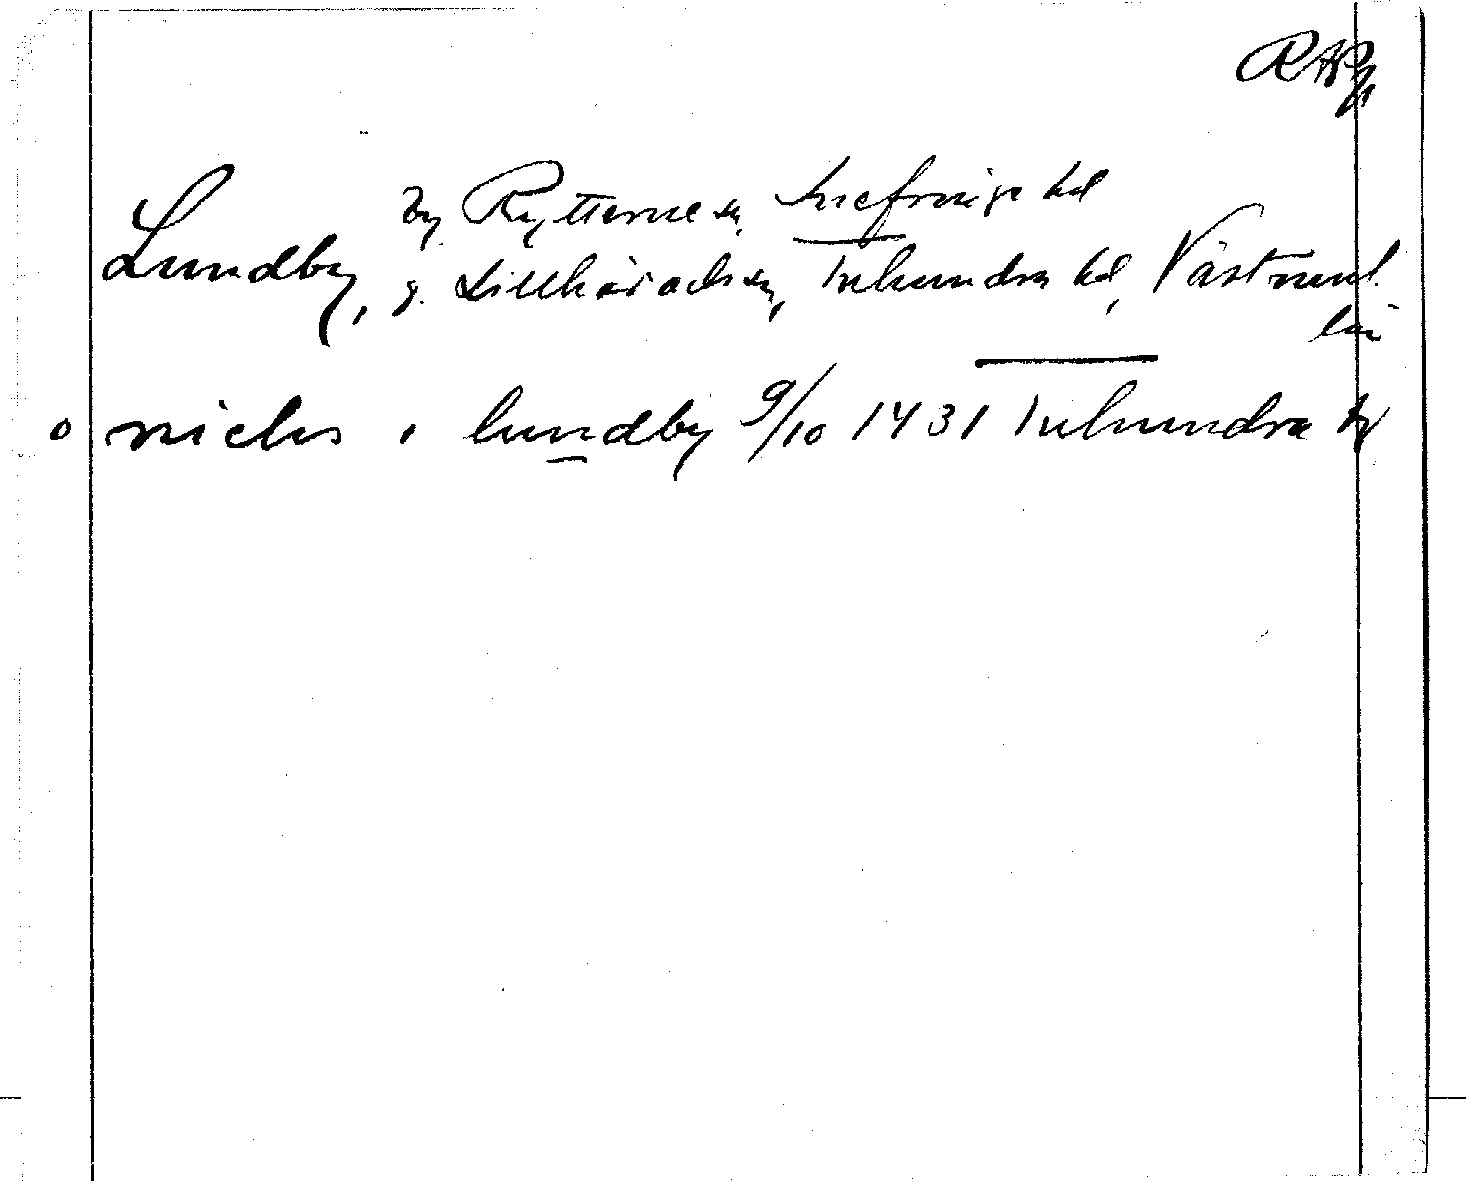 RAp
by Rytterne sn, Snefringe hd
Lundby, g. Lillhärads sn, Tuhundra hd, Västmanl.
län
o niclis i lundby 9/10 1431 Tuhundra